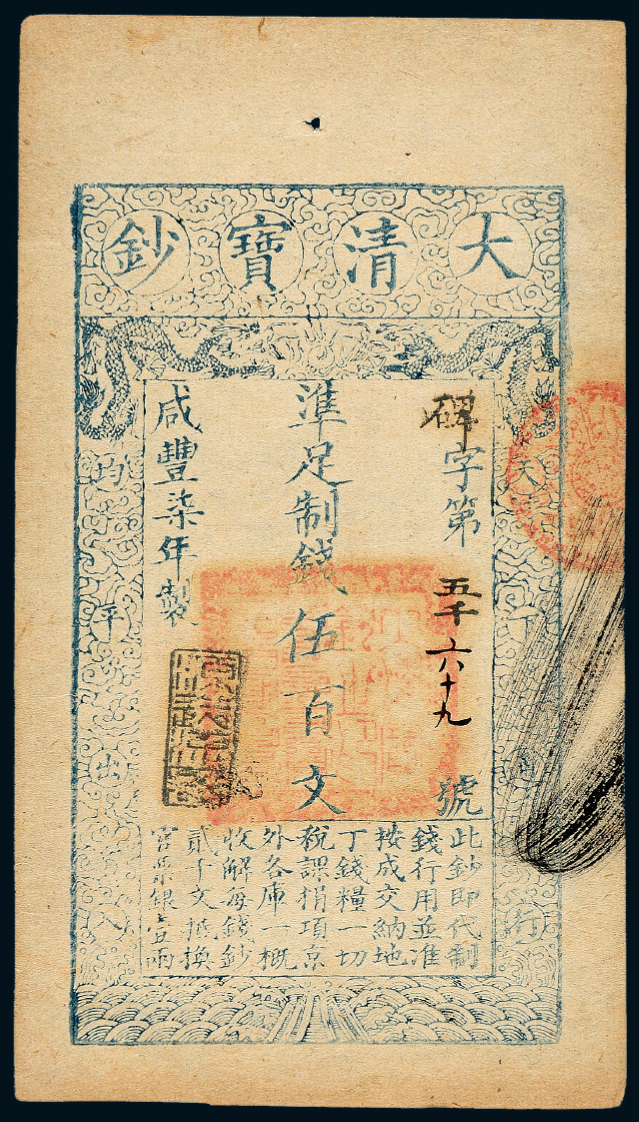 大清寶鈔
天下通行
均平出入
碑字第五千六十九號
準足制錢伍百文
咸豐柒年製
此鈔即代制
錢行用並准
按成交納地
丁錢糧一切
稅課捐項京
外各庫一概
收解每錢鈔
貳千文抵換
官票銀壹兩